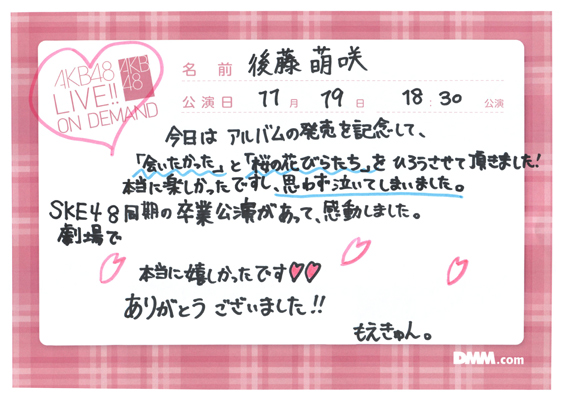 AKB48
LIVE!!
ON DEMAND
AKB
48
名前 後藤萌咲
公演日 11月 19日 18:30 公演
今日は アルバムの発売を記念して、
「会いたかった」と「桜の花びらたち」を ひろうさせて頂きました!
本当に楽しかったですし、思わず泣いてしまいました。
SKE48同期の卒業公演があって、感動しました。
劇場で
本当に嬉しかったです♥♥
ありがとう ございました!!
もえきゅん。
DMM.com